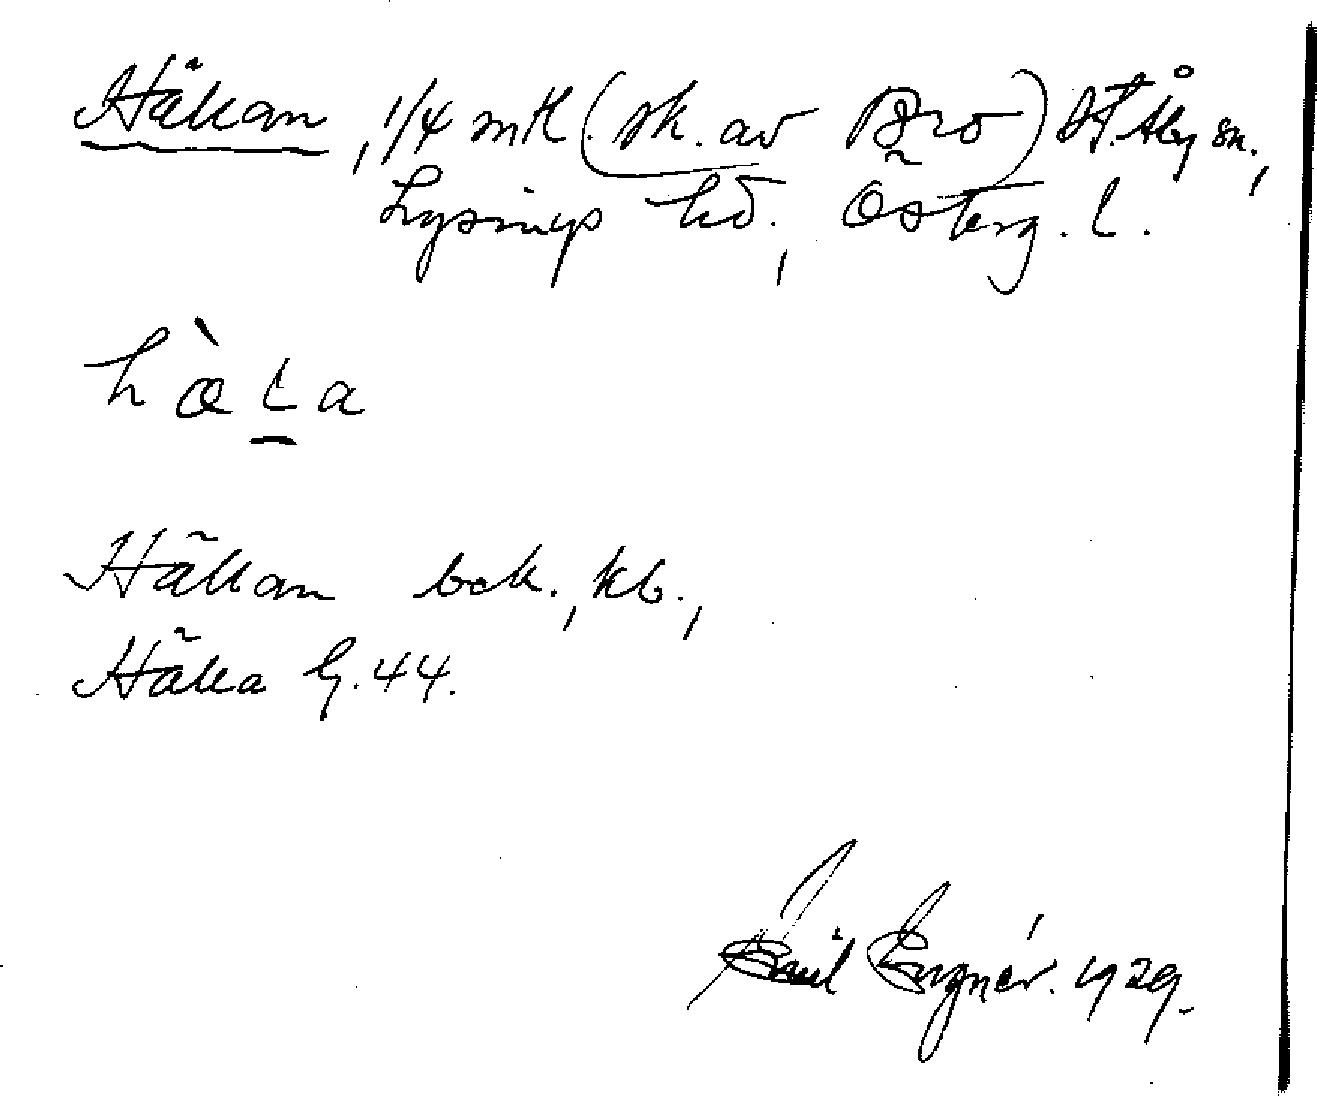 Häkan, 1/4 mtl (sk. av Bro) St. Åby sn.,
Lysings hd., Österg. l.
hàka
Häkan bek., kb.,
Häka G. 44.
Emil Engnér. 1929.